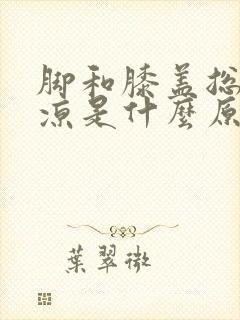 脚和膝盖总
凉是什麼原
葉翠微